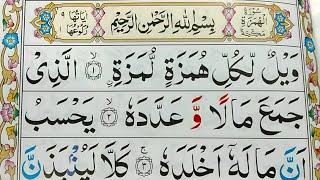 سُوْرَةُ الْهُمَزَةِ مَكِّيَّةٌ
بِسْمِ اللّٰهِ الرَّحْمٰنِ الرَّحِيْمِ
اٰيَاتُهَا ٩ رُكُوْعُهَا ١
وَيْلٌ لِّكُلِّ هُمَزَةٍ لُّمَزَةِ ۙ ﴿١﴾ اۨلَّذِىْ
جَمَعَ مَالًا وَّ عَدَّدَهٗ ۙ ﴿٢﴾ يَحْسَبُ
اَنَّ مَالَهٗۤ اَخْلَدَهٗ ۚ ﴿٣﴾ كَلَّا لَيُنْۢبَذَنَّ